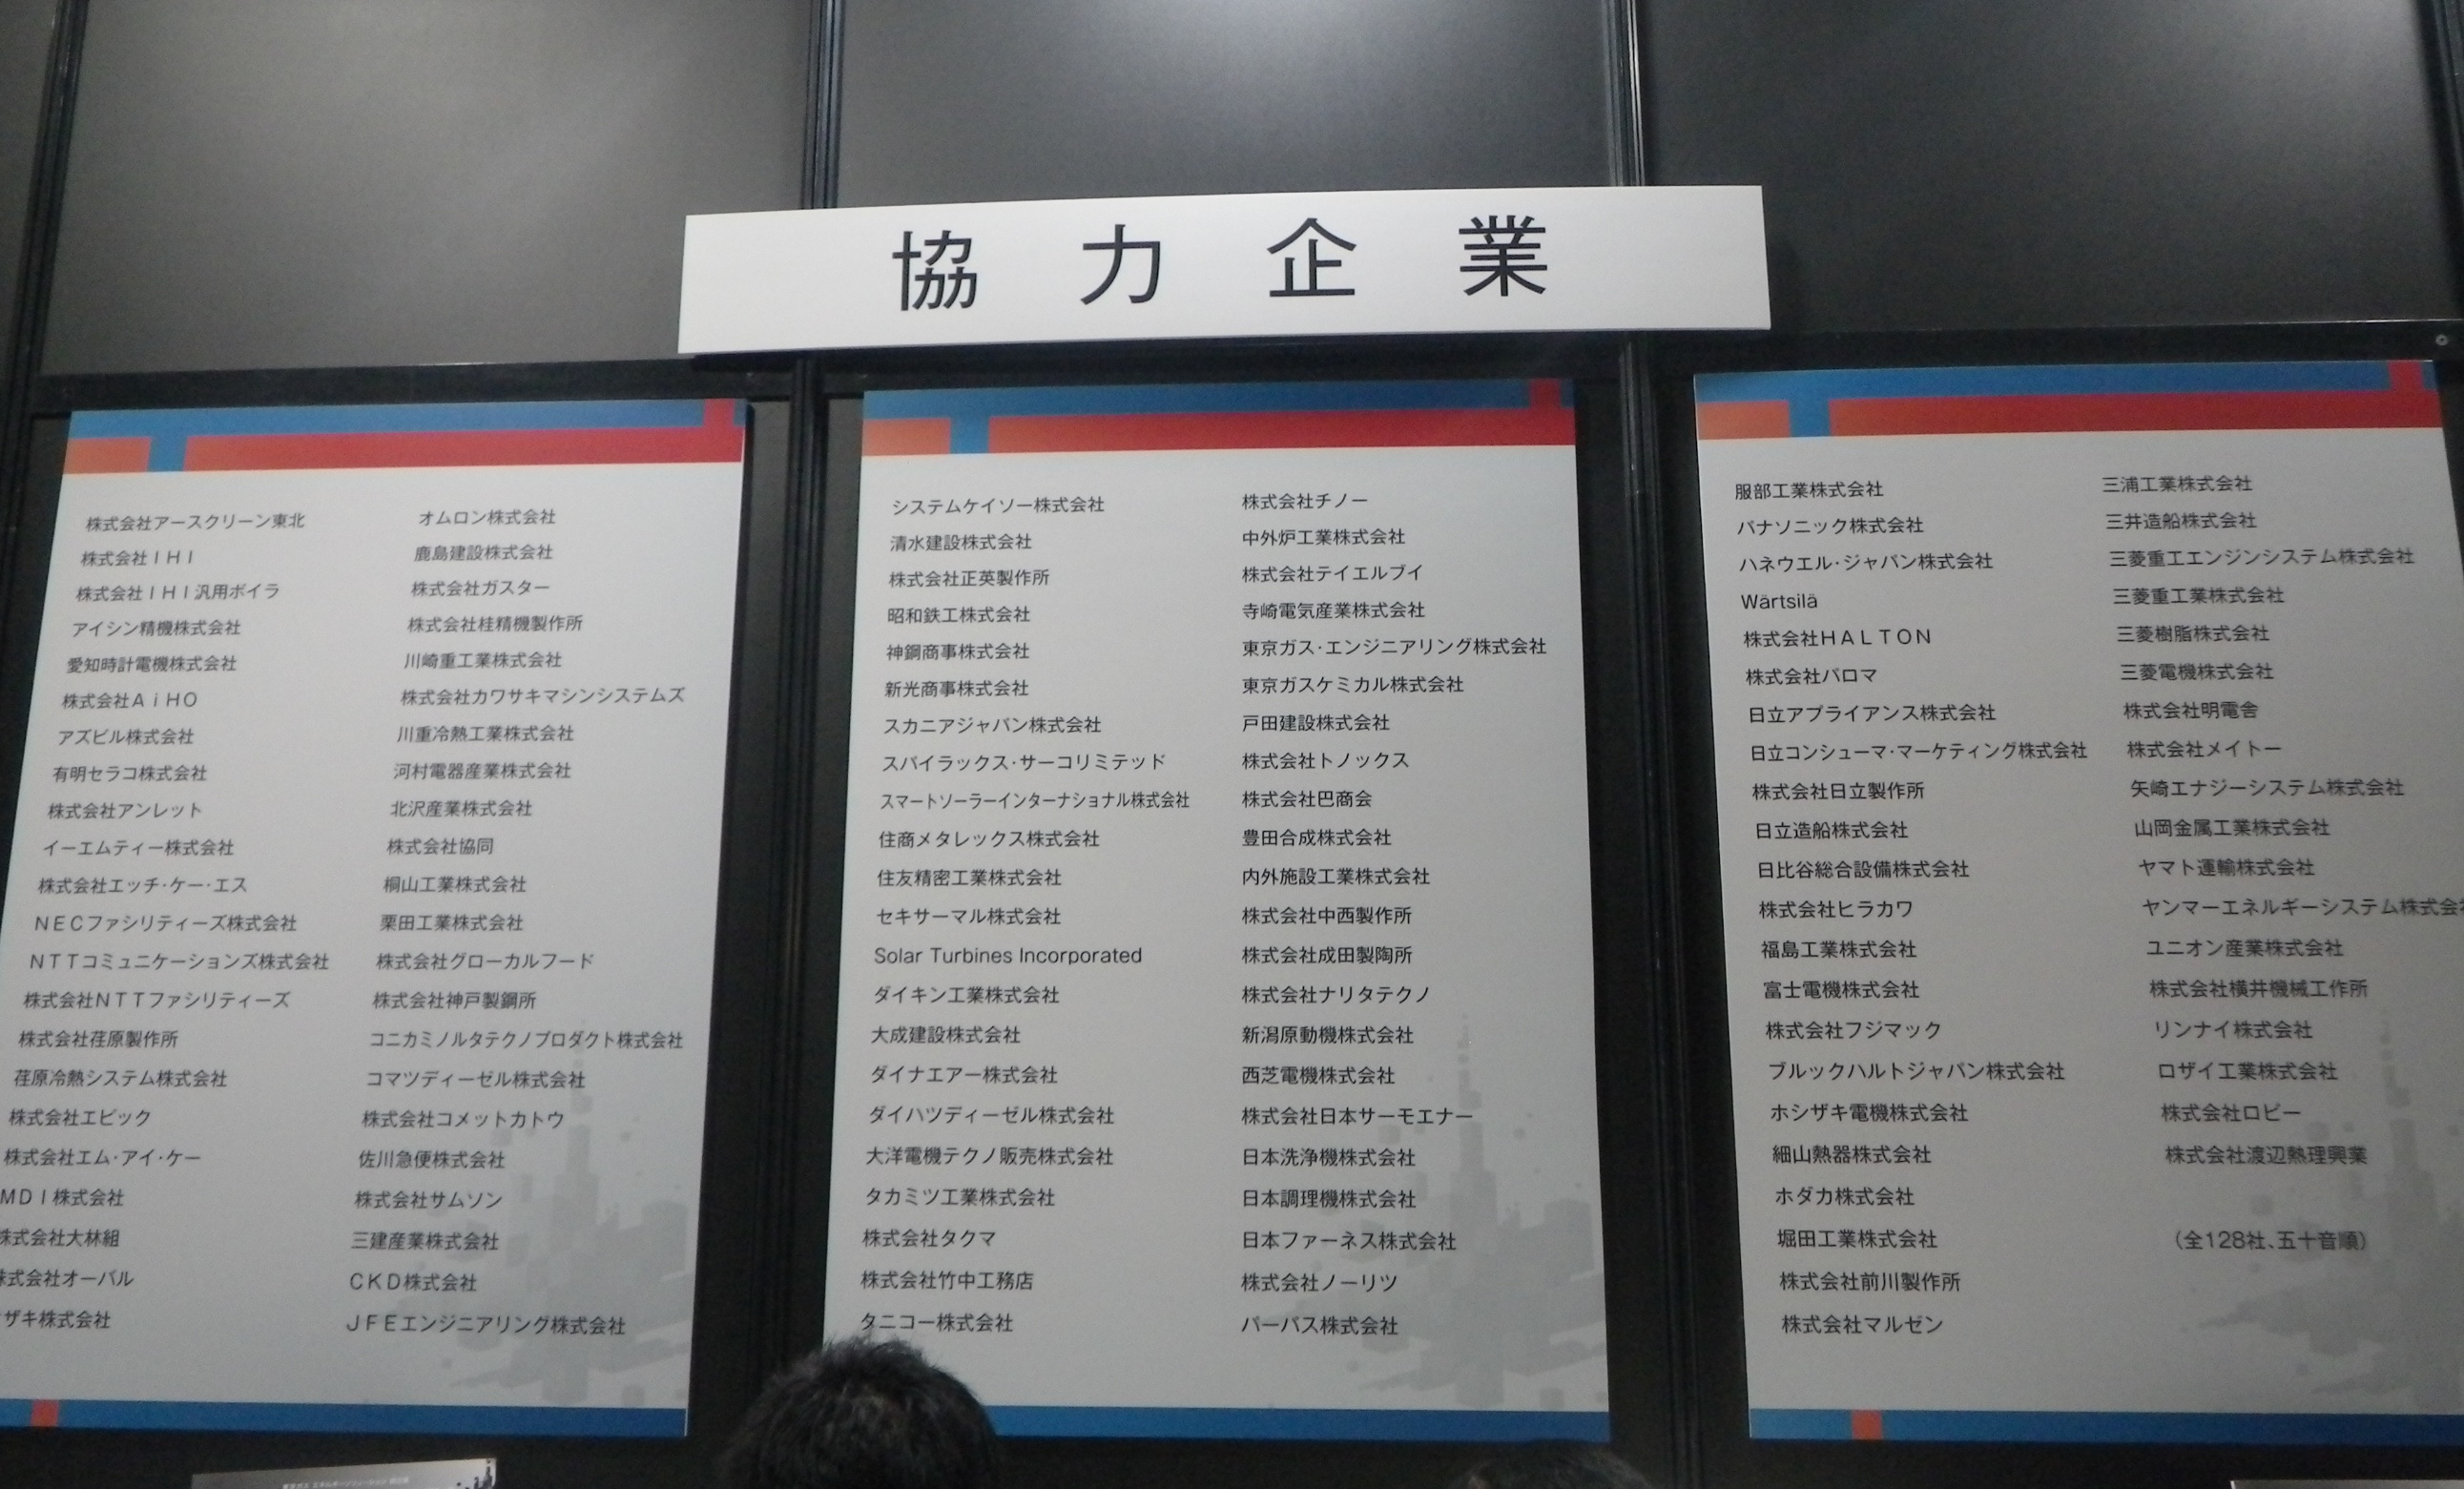 協力企業
株式会社アースクリーン東北
株式会社ＩＨＩ
株式会社ＩＨＩ汎用ボイラ
アイシン精機株式会社
愛知時計電機株式会社
株式会社ＡｉＨＯ
アズビル株式会社
有明セラコ株式会社
株式会社アンレット
イーエムティー株式会社
株式会社エッチ・ケー・エス
ＮＥＣファシリティーズ株式会社
ＮＴＴコミュニケーションズ株式会社
株式会社ＮＴＴファシリティーズ
株式会社荏原製作所
荏原冷熱システム株式会社
株式会社エピック
株式会社エム・アイ・ケー
ＭＤＩ株式会社
株式会社大林組
株式会社オーバル
ザキ株式会社
オムロン株式会社
鹿島建設株式会社
株式会社ガスター
株式会社桂精機製作所
川崎重工業株式会社
株式会社カワサキマシンシステムズ
川重冷熱工業株式会社
河村電器産業株式会社
北沢産業株式会社
株式会社協同
桐山工業株式会社
栗田工業株式会社
株式会社グローカルフード
株式会社神戸製鋼所
コニカミノルタテクノプロダクト株式会社
コマツディーゼル株式会社
株式会社コメットカトウ
佐川急便株式会社
株式会社サムソン
三建産業株式会社
ＣＫＤ株式会社
ＪＦＥエンジニアリング株式会社
システムケイソー株式会社
清水建設株式会社
株式会社正英製作所
昭和鉄工株式会社
神鋼商事株式会社
新光商事株式会社
スカニアジャパン株式会社
スパイラックス・サーコリミテッド
スマートソーラーインターナショナル株式会社
住商メタレックス株式会社
住友精密工業株式会社
セキサーマル株式会社
Solar Turbines Incorporated
ダイキン工業株式会社
大成建設株式会社
ダイナエアー株式会社
ダイハツディーゼル株式会社
大洋電機テクノ販売株式会社
タカミツ工業株式会社
株式会社タクマ
株式会社竹中工務店
タニコー株式会社
株式会社チノー
中外炉工業株式会社
株式会社テイエルブイ
寺崎電気産業株式会社
東京ガス・エンジニアリング株式会社
東京ガスケミカル株式会社
戸田建設株式会社
株式会社トノックス
株式会社巴商会
豊田合成株式会社
内外施設工業株式会社
株式会社中西製作所
株式会社成田製陶所
株式会社ナリタテクノ
新潟原動機株式会社
西芝電機株式会社
株式会社日本サーモエナー
日本洗浄機株式会社
日本調理機株式会社
日本ファーネス株式会社
株式会社ノーリツ
パーパス株式会社
服部工業株式会社
パナソニック株式会社
ハネウエル・ジャパン株式会社
Wärtsilä
株式会社ＨＡＬＴＯＮ
株式会社パロマ
日立アプライアンス株式会社
日立コンシューマ・マーケティング株式会社
株式会社日立製作所
日立造船株式会社
日比谷総合設備株式会社
株式会社ヒラカワ
福島工業株式会社
富士電機株式会社
株式会社フジマック
ブルックハルトジャパン株式会社
ホシザキ電機株式会社
細山熱器株式会社
ホダカ株式会社
堀田工業株式会社
株式会社前川製作所
株式会社マルゼン
三浦工業株式会社
三井造船株式会社
三菱重工エンジンシステム株式会社
三菱重工業株式会社
三菱樹脂株式会社
三菱電機株式会社
株式会社明電舎
株式会社メイトー
矢崎エナジーシステム株式会社
山岡金属工業株式会社
ヤマト運輸株式会社
ヤンマーエネルギーシステム株式会社
ユニオン産業株式会社
株式会社横井機械工作所
リンナイ株式会社
ロザイ工業株式会社
株式会社ロビー
株式会社渡辺熱理興業
（全128社、五十音順）